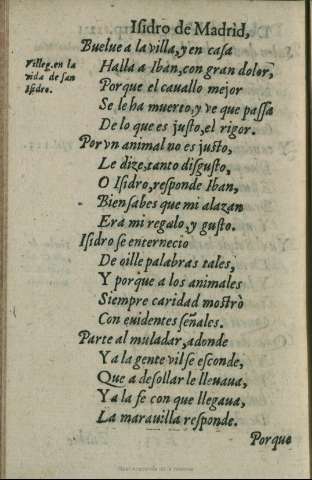 Isidro de Madrid,
Buelue a la villa, y en casa
Villeg. en la
vida de san
Isidro.
Halla a Iban, con gran dolor,
Porque el cauallo mejor
Se le ha muerto, y ve que passa
De lo que es justo, el rigor.
Por vn animal no es justo,
Le dize, tanto disgusto,
O Isidro, responde Iban,
Bien sabes que mi alazan
Era mi regalo, y gusto.
Isidro se enternecio
De oille palabras tales,
Y porque a los animales
Siempre caridad mostrò
Con euidentes señales.
Parte al muladar, adonde
Y a la gente vil se esconde,
Que a desollar le lleuaua,
Y a la fe con que llegaua,
La marauilla responde.
Porque
Real Academia de la Historia